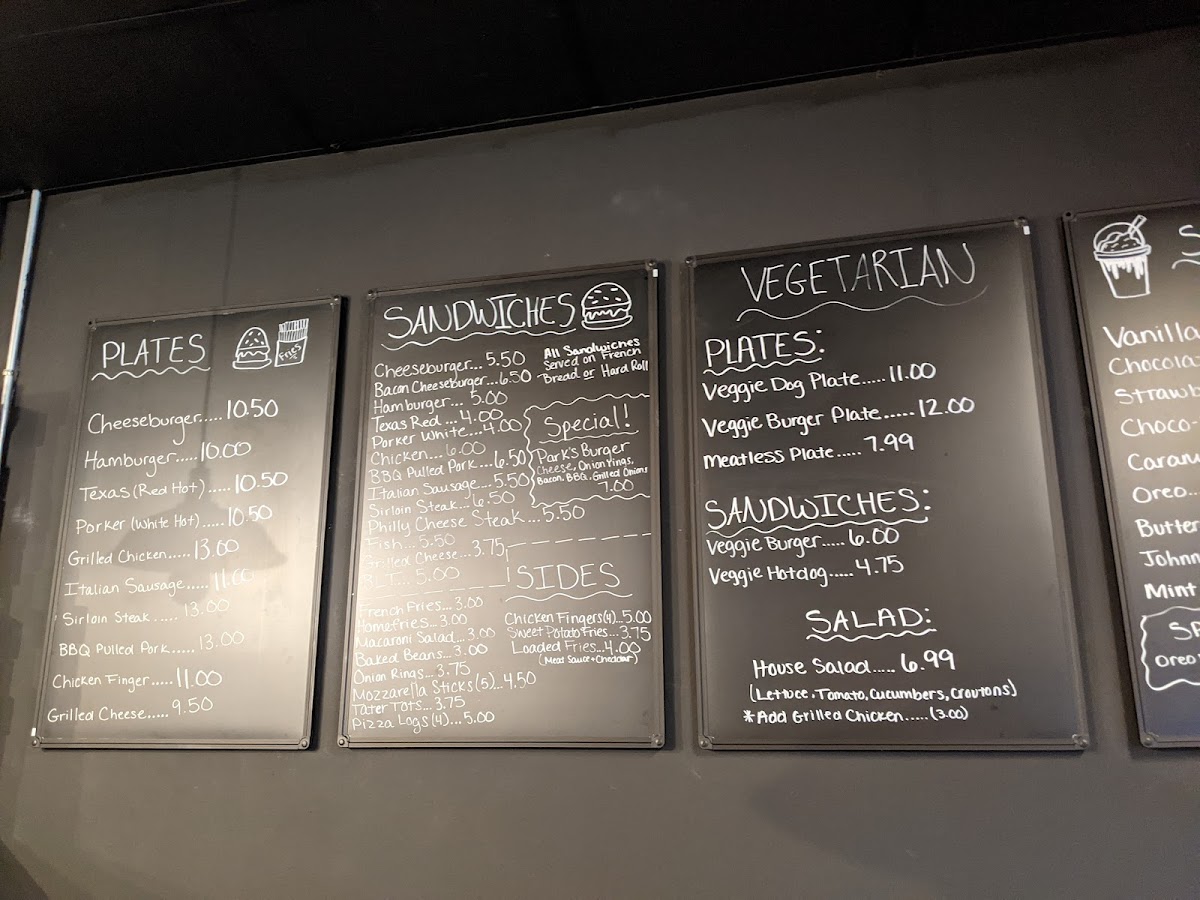 PLATES
Fries
Cheeseburger.....10.50
Hamburger.....10.00
Texas (Red Hot).....10.50
Porker (White Hot).....10.50
Grilled Chicken.....13.00
Italian Sausage.....11.00
Sirloin Steak.....13.00
BBQ Pulled Pork.....13.00
Chicken Finger.....11.00
Grilled Cheese.....9.50
SANDWICHES
Cheeseburger...5.50
Bacon Cheeseburger...6.50
Hamburger...5.00
Texas Red...4.00
Porker White...4.00
Chicken...6.00
BBQ Pulled Pork...6.50
Italian Sausage...5.50
Sirloin Steak...6.50
Philly Cheese Steak...5.50
Fish...5.50
Grilled Cheese...3.75
BLT...5.00
All Sandwiches
Served on French
Bread or Hard Roll
Special!
Park's Burger
Cheese, Onion Rings,
Bacon, BBQ, Grilled Onions
7.00
SIDES
French Fries...3.00
Homefries...3.00
Macaroni Salad...3.00
Baked Beans...3.00
Onion Rings...3.75
Mozzarella Sticks (5)...4.50
Tater Tots...3.75
Pizza Logs (4)...5.00
Chicken Fingers (4)...5.00
Sweet Potato Fries...3.75
Loaded Fries...4.00
(Meat Sauce + Cheddar)
VEGETARIAN
PLATES:
Veggie Dog Plate.....11.00
Veggie Burger Plate......12.00
Meatless Plate.....7.99
SANDWICHES:
Veggie Burger.....6.00
Veggie Hotdog.....4.75
SALAD:
House Salad.....6.99
(Lettuce, Tomato, Cucumbers, Croutons)
*Add Grilled Chicken......(3.00)
S
Vanilla
Chocola
Strawb
Choco-
Caram
Oreo..
Butter
Johnn
Mint
Sp
Oreo